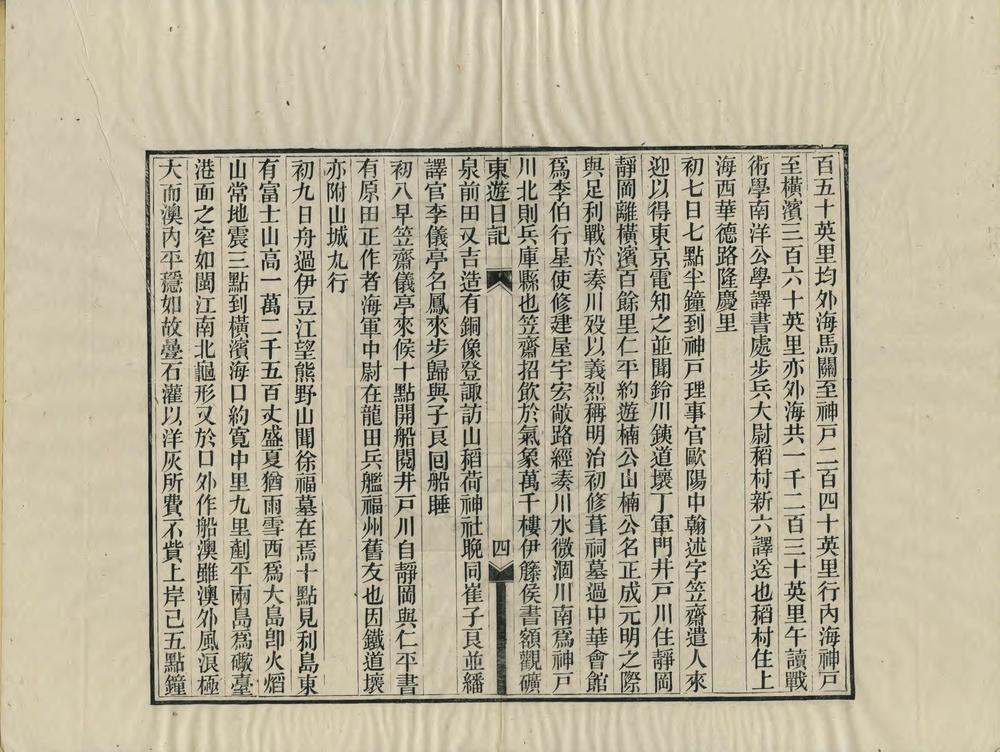 百五十英里均外海馬關至神戸二百四十英里行内海神戸
至橫濱三百六十英里亦外海共一千二百三十英里午讀戰
術學南洋公學譯書處步兵大尉稻村新六譯送也稻村住上
海西華德路隆慶里
初七日七點半鐘到神戸理事官歐陽中翰述字笠齋遣人來
迎以得東京電知之並聞鈴川鐵道壞丁軍門井戸川住靜岡
靜岡離橫濱百餘里仁平約遊楠公山楠公名正成元明之際
與足利戰於奏川歿以義烈稱明治初修葺祠墓過中華會館
爲李伯行星使修建屋宇宏敞路經奏川水微涸川南爲神戸
川北則兵庫縣也笠齋招飲於氣象萬千樓伊籐侯書額觀礦
東遊日記 四
泉前田又吉造有銅像登諏訪山稻荷神社晚同崔子良並繙
譯官李儀亭名鳳來步歸與子良囘船睡
初八早笠齋儀亭來候十點開船閱井戸川自靜岡與仁平書
有原田正作者海軍中尉在龍田兵艦福州舊友也因鐵道壞
亦附山城丸行
初九日舟過伊豆江望熊野山聞徐福墓在焉十點見利島東
有富士山高一萬二千五百丈盛夏猶雨雪西爲大島卽火焰
山常地震三點到橫濱海口約寛中里九里剷平兩島爲礮臺
港面之窄如閩江南北龜形又於口外作船澳雖澳外風浪極
大而澳内平穩如故疊石灌以洋灰所費不貲上岸已五點鐘